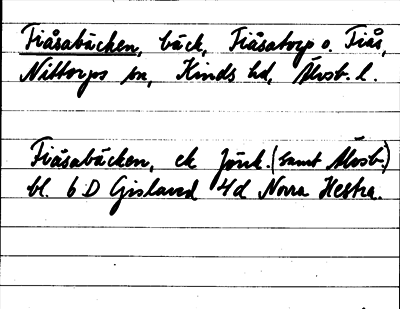 Fiåsabäcken, bäck, Fiåsatorp o. Fiås,
Nittorps sn, Kinds hd, Älvsb. l.
Fiåsabäcken, ek Jönk. (samt Älvsb.)
bl. 6 D Gislaved 4d Norra Hestra.